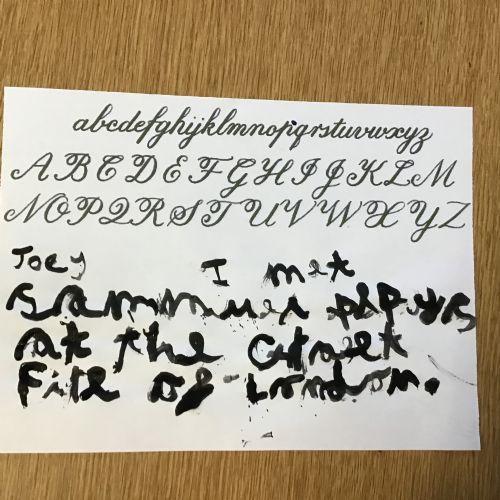 abcdefghijklmnopqrstuvwxyz
ABCDEFGHIJKLM
NOPQRSTUVWXYZ
Joey I met
Sammuel
at the
Fire of London.